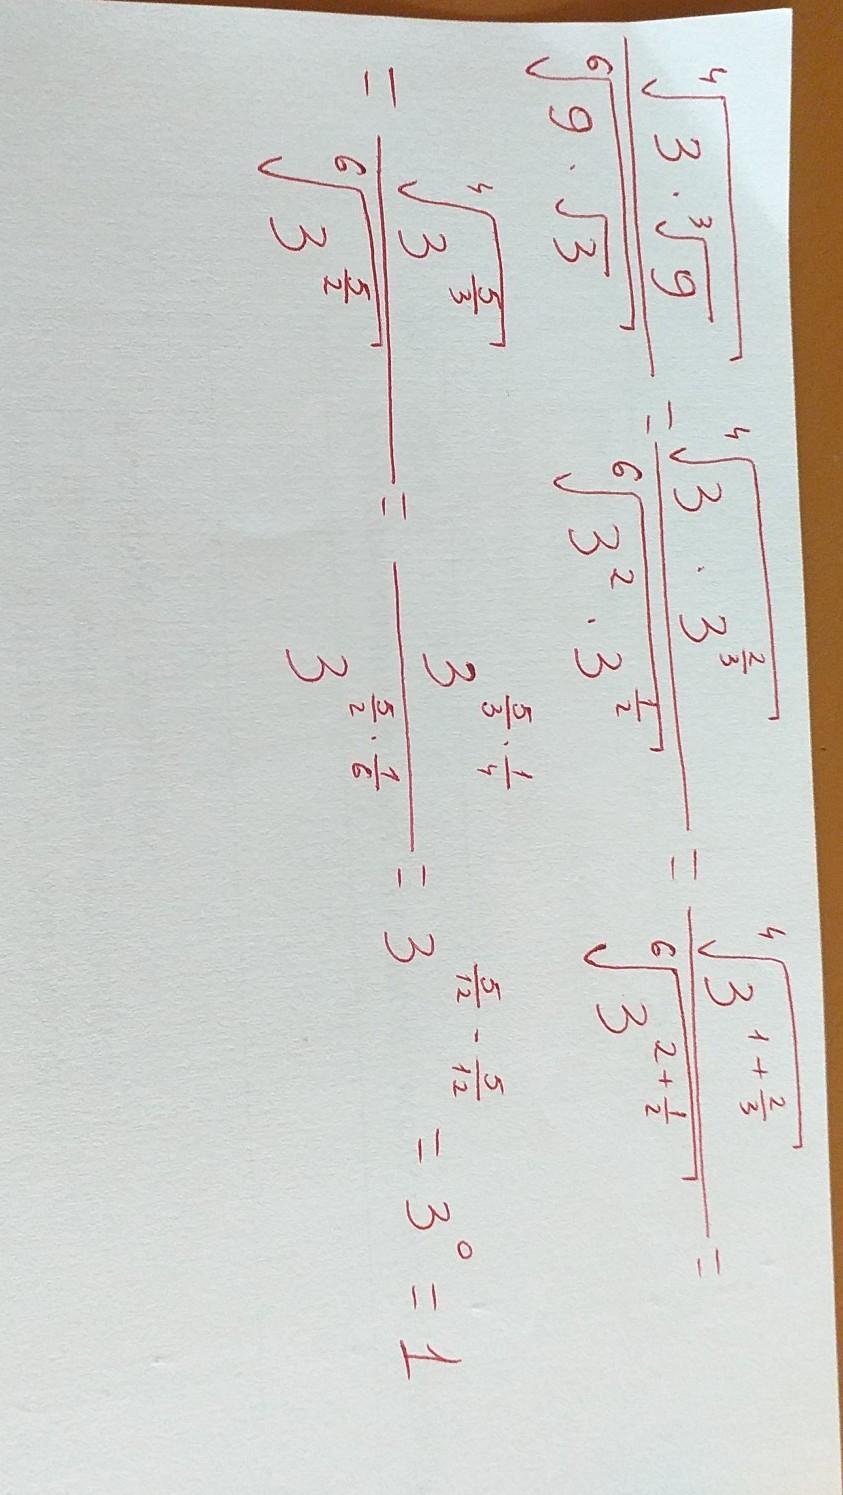 $\frac{\sqrt[4]{3 \cdot \sqrt[3]{9}}}{\sqrt[6]{9 \cdot \sqrt{3}}} = \frac{\sqrt[4]{3 \cdot 3^{\frac{2}{3}}}}{\sqrt[6]{3^2 \cdot 3^{\frac{1}{2}}}} = \frac{\sqrt[4]{3^{1+\frac{2}{3}}}}{\sqrt[6]{3^{2+\frac{1}{2}}}} =$
$= \frac{\sqrt[4]{3^{\frac{5}{3}}}}{\sqrt[6]{3^{\frac{5}{2}}}} = \frac{3^{\frac{5}{3} \cdot \frac{1}{4}}}{3^{\frac{5}{2} \cdot \frac{1}{6}}} = 3^{\frac{5}{12} - \frac{5}{12}} = 3^0 = 1$